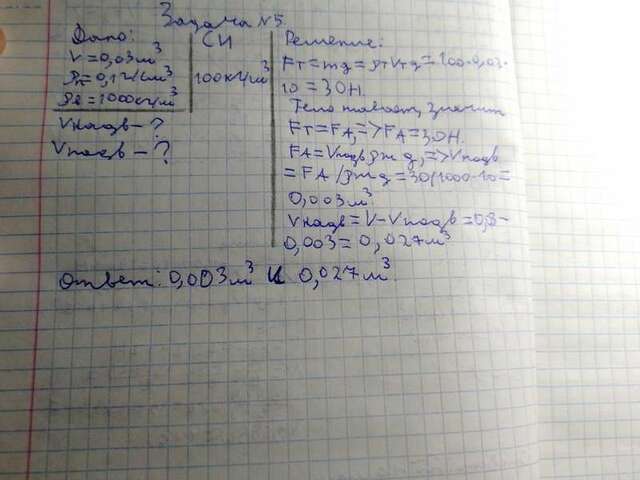 Задача №5
Дано:
V=0,03м³
ρт=0,1г/см³
ρв=1000кг/м³
Vнадв-?
Vподв-?
СИ
100кг/м³
Решение:
Fт=mg=ρтVтg=100·0,03·
10=30Н.
Тело плавает, значит
Fт=FА,=>FА=30Н.
FА=Vподвρжg,=>Vподв
=FА/ρжg=30/1000·10=
0,003м³.
Vнадв=V-Vподв=0,3-
0,003=0,027м³
Ответ: 0,003м³ и 0,027м³.